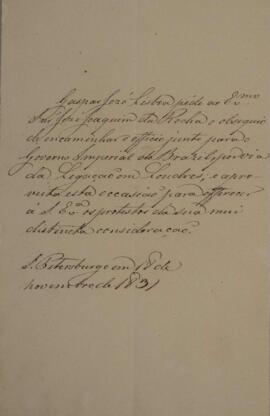 Gaspar José Lisboa pede ao Ex.mo
Snr José Joaquim da Rocha o obsequio
de encaminhar o officio junto para o
Governo Imperial do Brazil, por via
da Legação em Londres; e apro-
veita esta occasião para offerecer
á S. Ex.a os protestos da sua mui
distincta consideração.
S. Petersburgo em 18 de
novembro de 1831